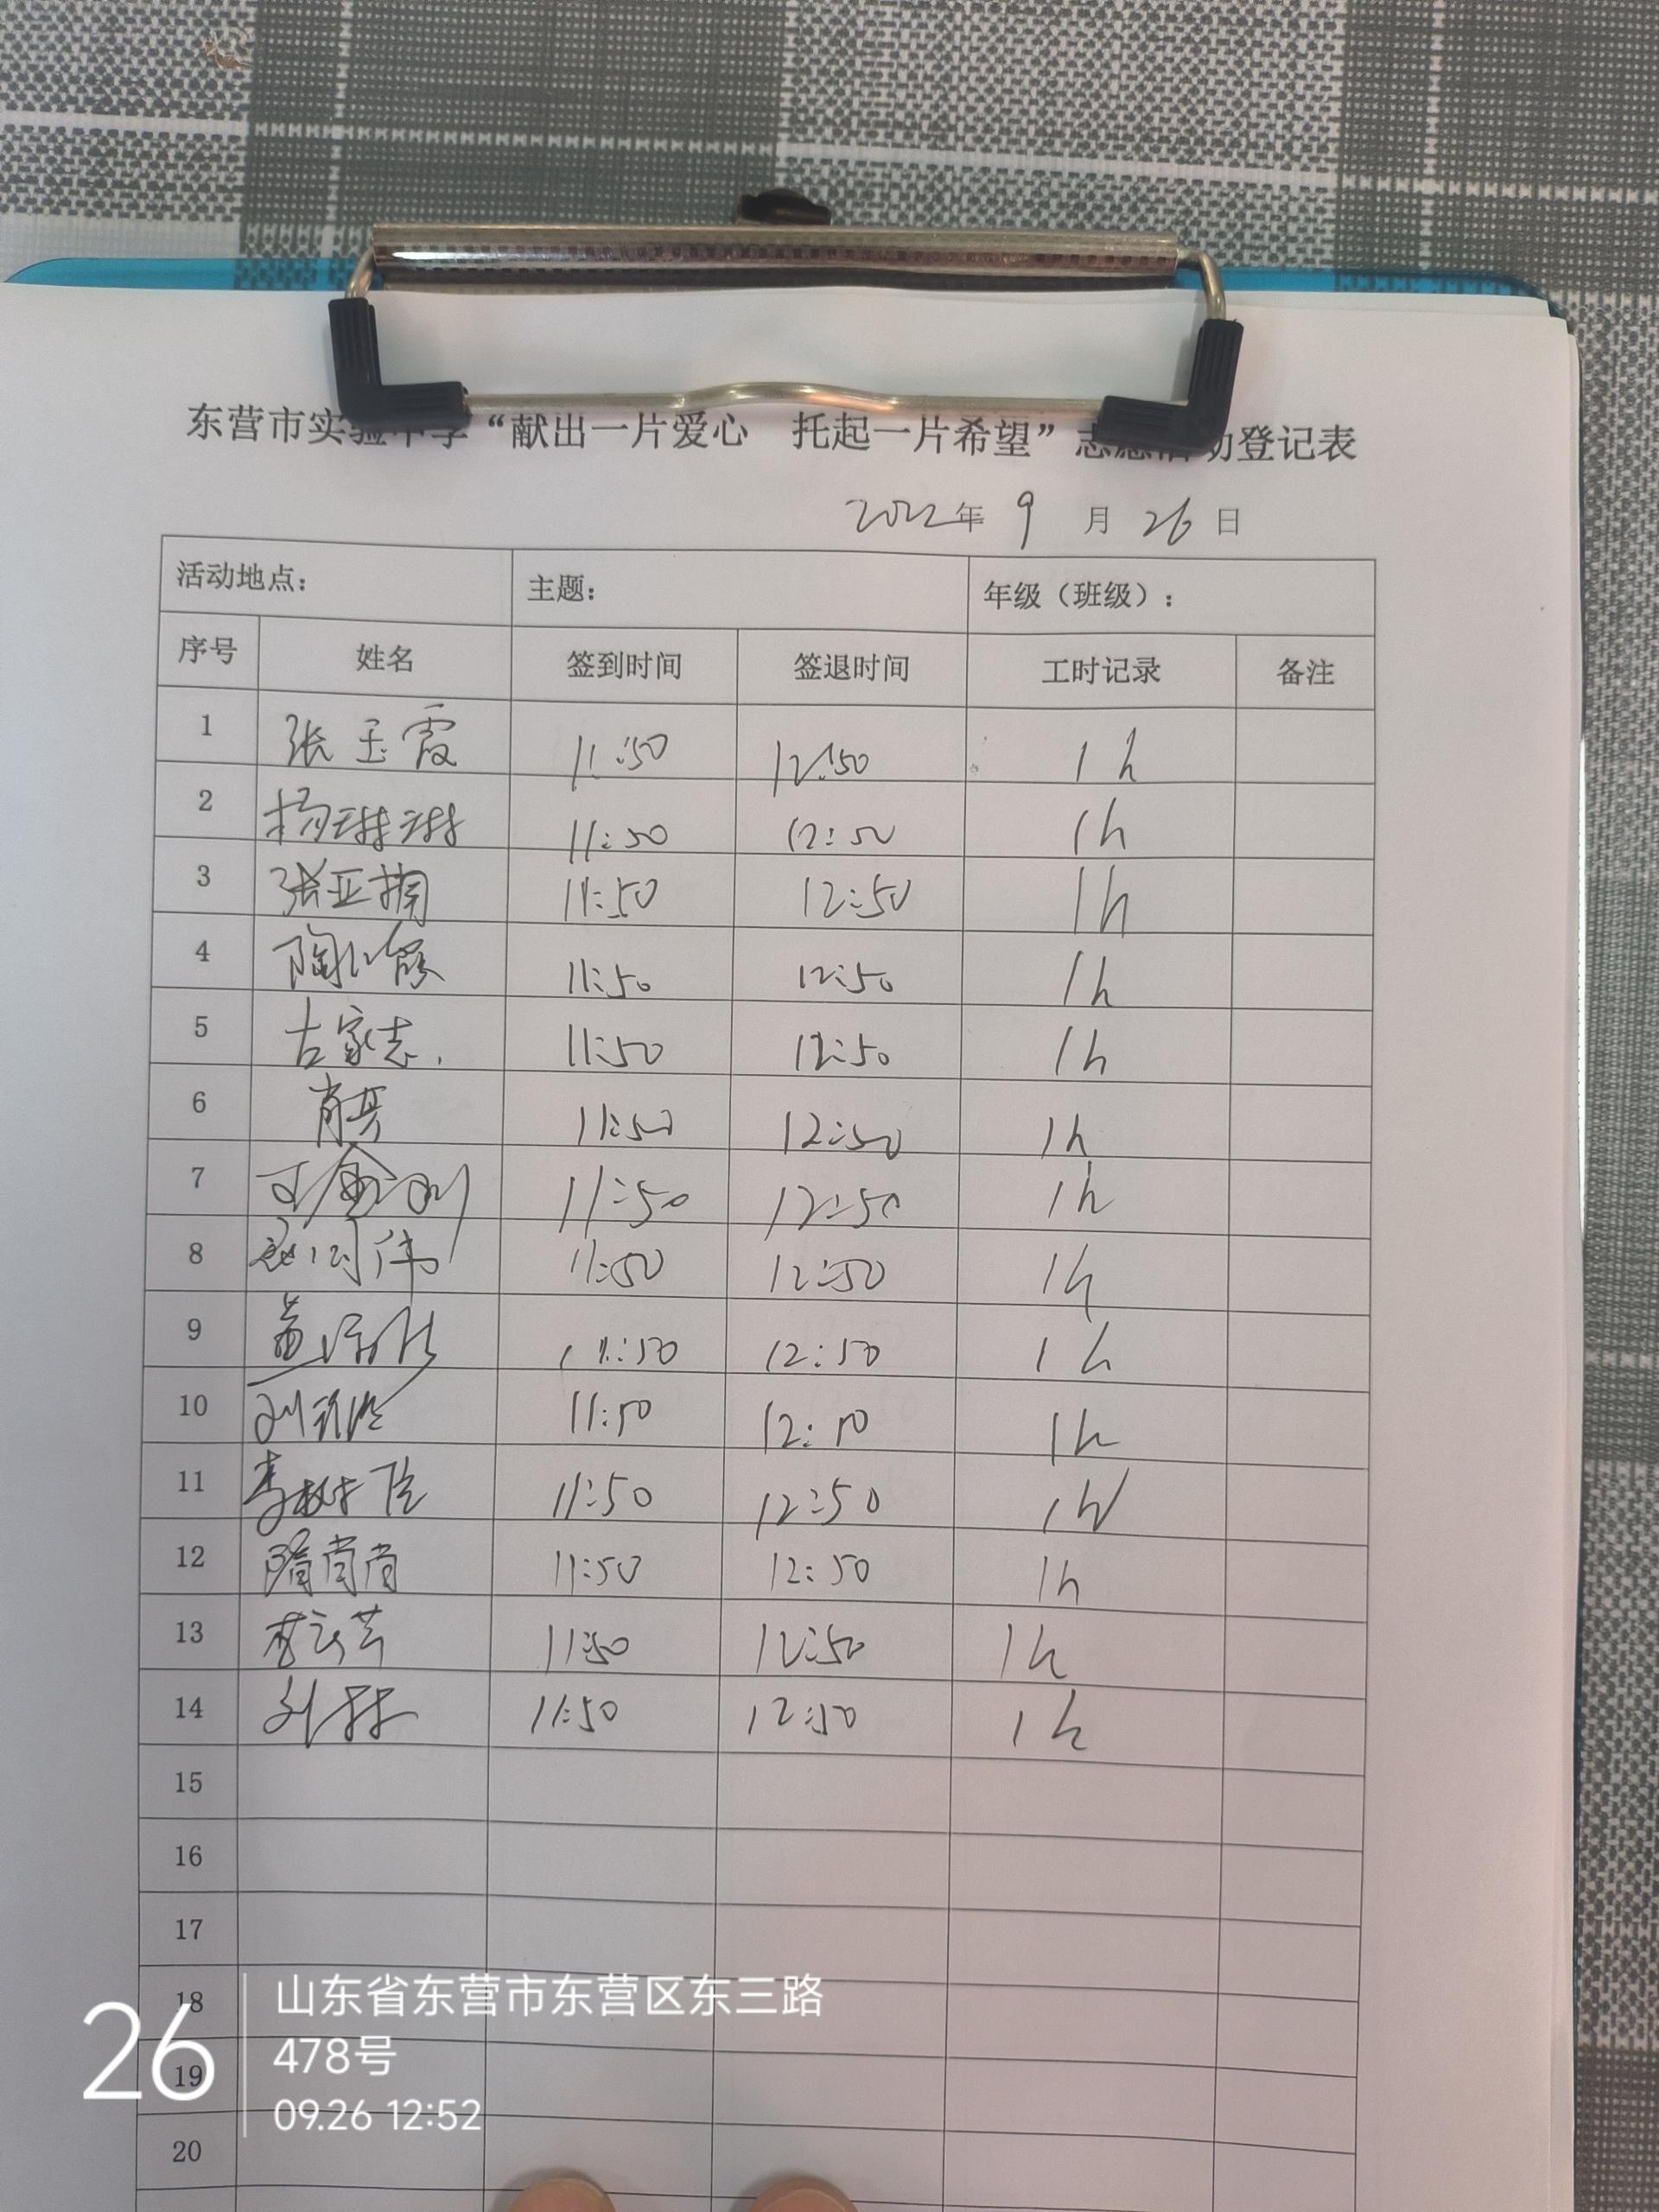 东营市实验中学“献出一片爱心 托起一片希望”志愿活动登记表
2022年 9 月 26 日
活动地点： 主题： 年级（班级）：
序号 姓名 签到时间 签退时间 工时记录 备注
1 张玉霞 11:50 12:50 1h
2 杨琳琳 11:50 12:50 1h
3 张亚楠 11:50 12:50 1h
4 11:50 12:50 1h
5 古家志 11:50 12:50 1h
6 11:50 12:50 1h
7 11:50 12:50 1h
8 11:50 12:50 1h
9 11:50 12:50 1h
10 11:50 12:50 1h
11 11:50 12:50 1h
12 隋肖肖 11:50 12:50 1h
13 11:50 12:50 1h
14 11:50 12:50 1h
15
16
17
18
19
20
26
山东省东营市东营区东三路
478号
09.26 12:52